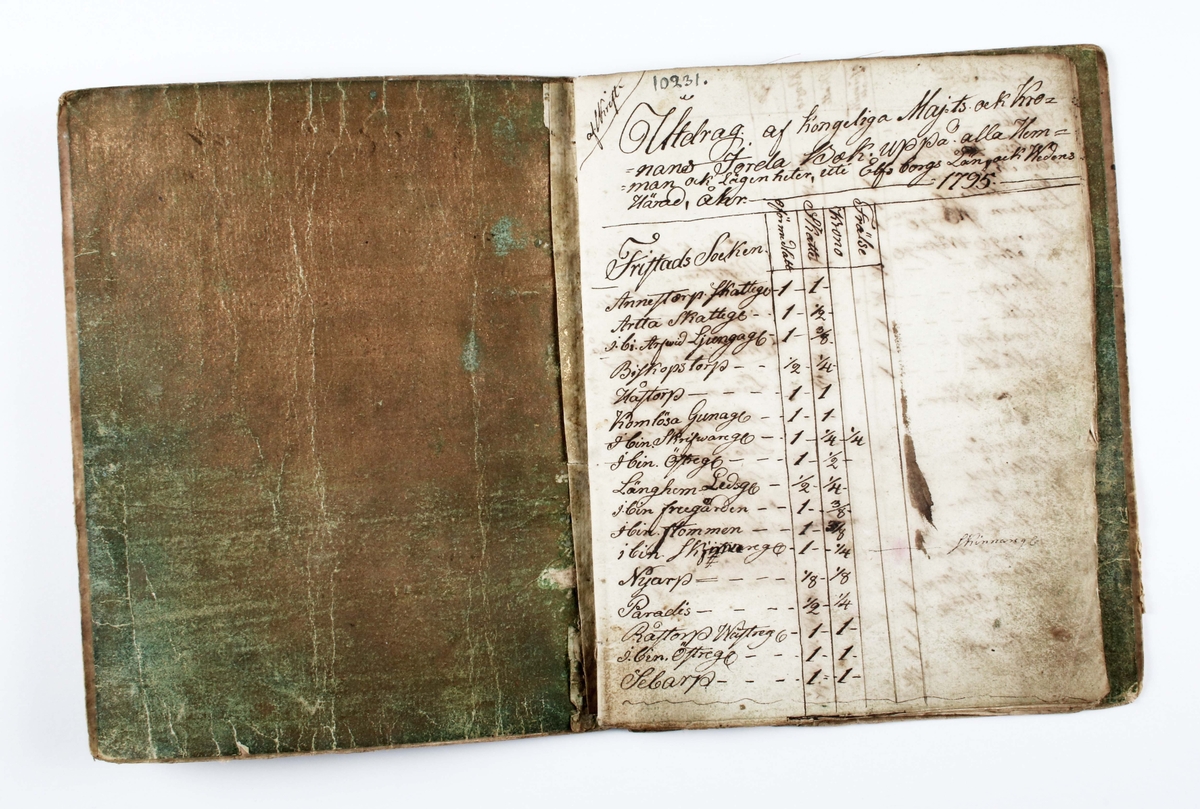 10231.
afskrift
Utdrag. af kongeliga Maj:ts. ock Kro=
=nans Jorda Bok. uppå. alla Hem=
=man, ock Lägenheter, uti Elfsborgs Län, ock Wedens
Härad, åhr. 1795.
Fristads Socken. Skatte Krono Frälse
Annestorp. Skatteg 1 - 1 -
Artta Skatteg - - 1 - ½ -
i.bi. Ljungag 1 - 3/8.
Biskopstorp - - ½ - ¼ -
Håstorp - - - - 1 - 1
Komlösa Gunag - 1 - 1 -
i bin. Skrifwareg - 1 - ¼ - ¼
i bin. Östreg - - - 1 - ½ -
Långhem Ledsg - ½ - ¼ -
i bin freegården - - 1 - 3/8 -
i bin. stommen - - 1 -
i bin. - 1 - - ¼
Nyarp - - - - ⅛ - ⅛
Paradis - - - - ½ - ¼
Råstorp Wästreg - 1 - 1 -
i.bin. Östreg - - - 1 - 1 -
Sebarp - - - - 1 - 1 -
skinnareg